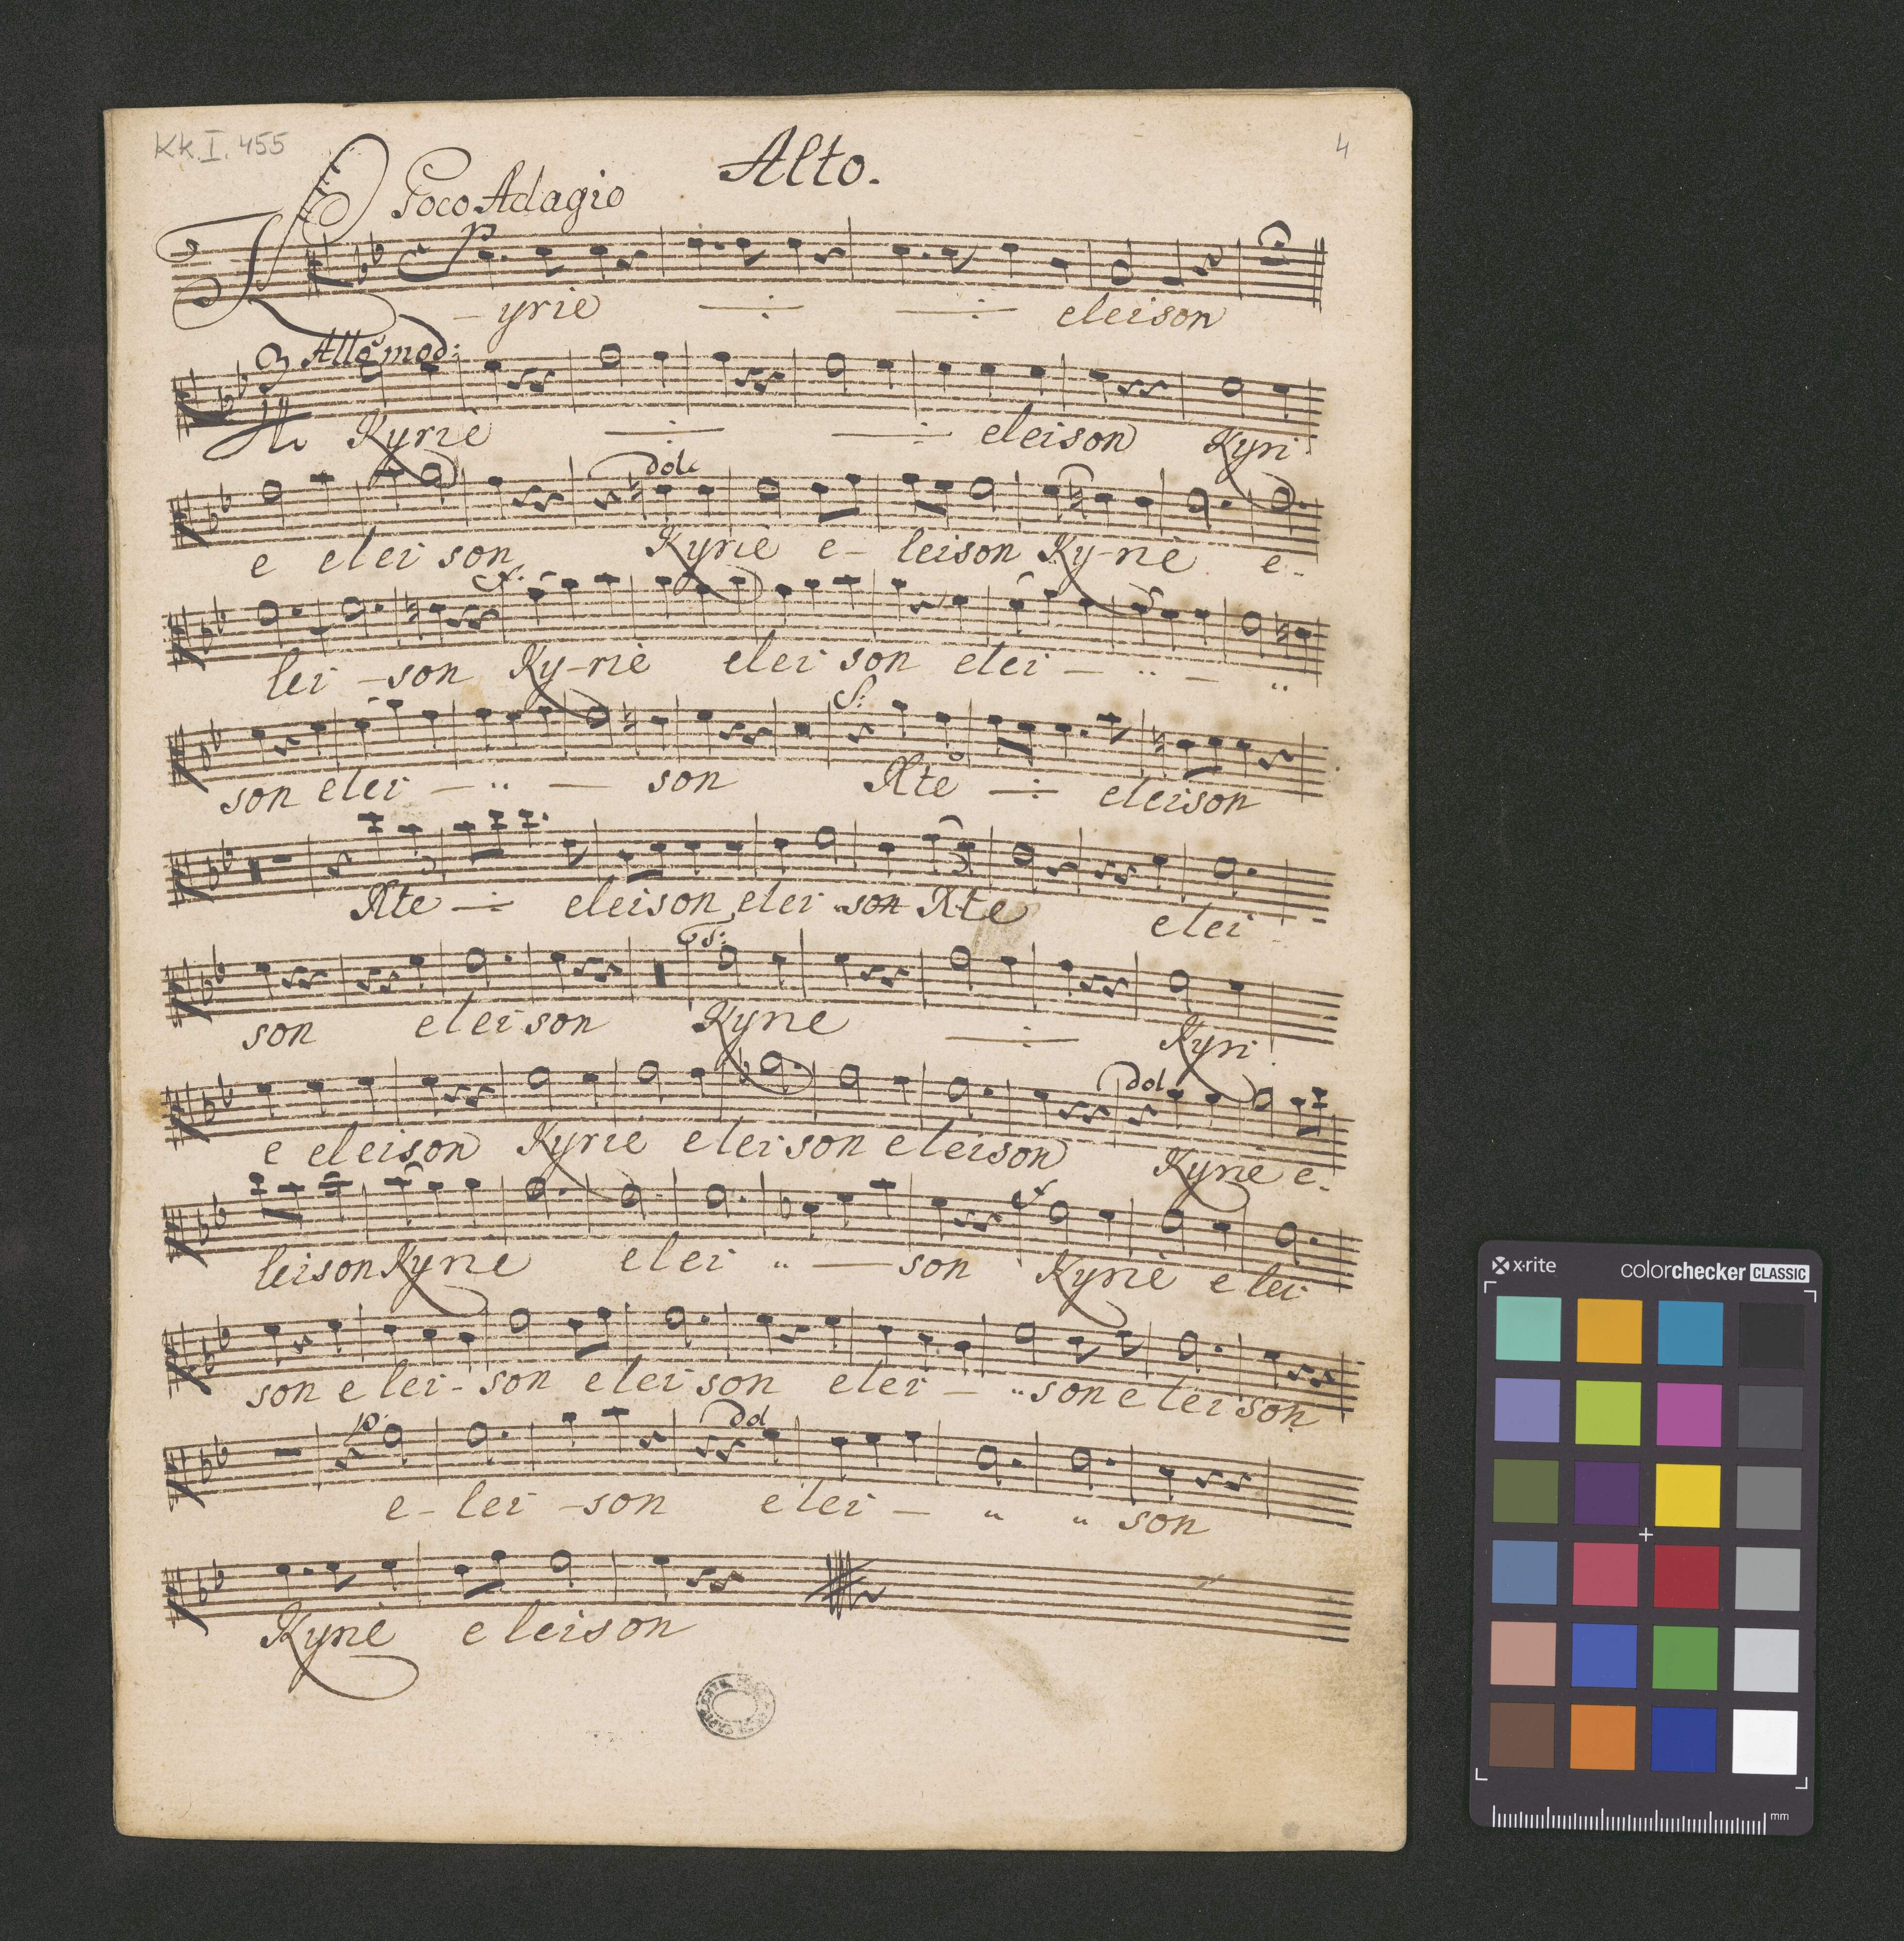 KK.I.455
Alto.
4
Poco Adagio
p
Kyrie eleison
3 Allo mod:
Kyrie eleison Kyri
dol.
e eleison Kyrie e- leison Ky-rie e-
f.
lei -son Ky-rie eleison elei
f:
son elei son Xte eleison
Xte eleison elei son Xte elei
f:
son eleison Kyrie Kyri
dol
e eleison Kyrie eleison eleison Kyrie e-
f
leison Kyrie elei son Kyrie elei
son elei-son eleison elei son eleison
p dol
e-lei-son elei son
Kyrie eleison
x-rite
colorchecker CLASSIC
mm